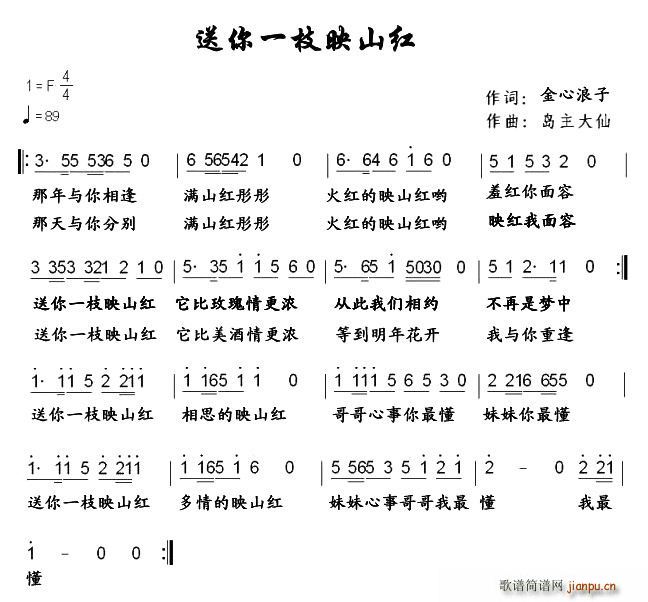 送你一枝映山红
1=F 4/4
♩=89
作词：金心浪子
作曲：岛主大仙
‖: 3· 55 536 5 0 | 6 56542 1 0 | 6· 64 6 1̇ 6 0 | 5 1 5 3 2 0 |
那年与你相逢 满山红彤彤 火红的映山红哟 羞红你面容
那天与你分别 满山红彤彤 火红的映山红哟 映红我面容
3 353 321 2 1 0 | 5· 35 1̇ 1̇ 5 6 0 | 5· 65 1̇ 5030 0 | 5 1 2· 1 0 :‖
送你一枝映山红 它比玫瑰情更浓 从此我们相约 不再是梦中
送你一枝映山红 它比美酒情更浓 等到明年花开 我与你重逢
1̇· 1̇1̇ 5 2̇ 2̇1̇1̇ | 1̇ 1̇65 1̇ 1̇ 0 | 1̇ 1̇1̇1̇ 5 6 5 3 0 | 2 216 655 0 |
送你一枝映山红 相思的映山红 哥哥心事你最懂 妹妹你最懂
1̇· 1̇1̇ 5 2̇ 2̇1̇1̇ | 1̇ 1̇65 1̇ 6 0 | 5 565 3 5 1̇ 2̇ 1̇ | 2̇ – 0 2̇ 2̇1̇ |
送你一枝映山红 多情的映山红 妹妹心事哥哥我最 懂 我最
1̇ – 0 0 :‖
懂
歌谱简谱网 jianpu.cn